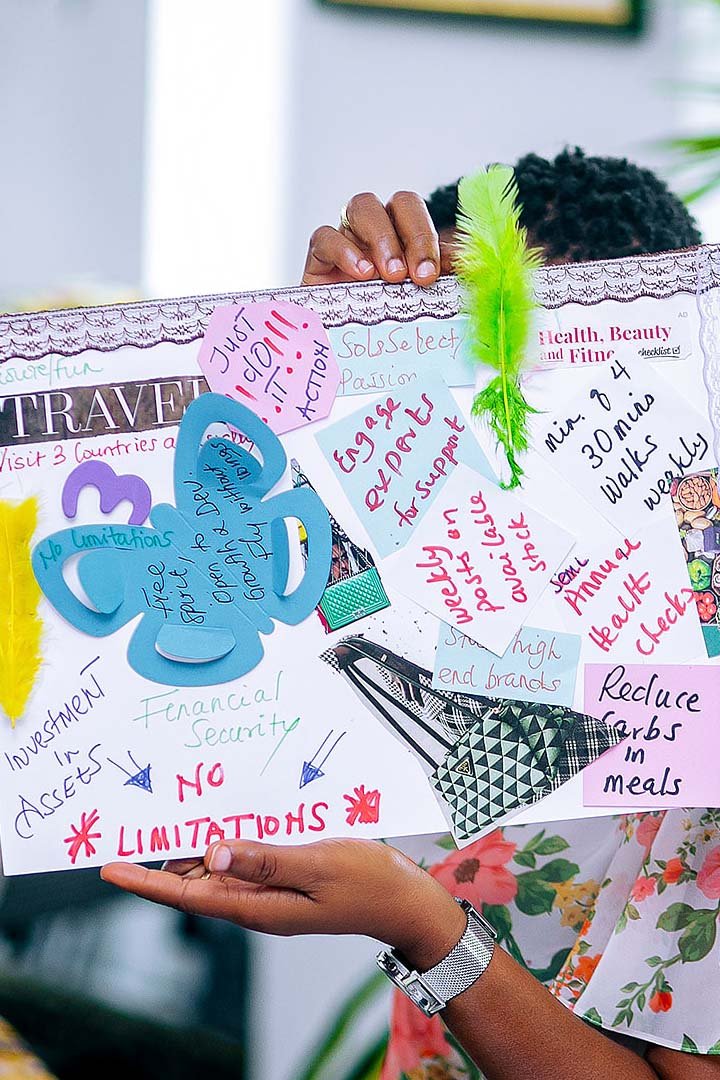 TRAVEL
Visit 3 Countries a
JUST
do!!!
IT
ACTION
SolsSelect
Passion
Engage
experts
for support
AD
Health, Beauty
and Fitne
checklist
min. of 4
30mins
Walks
weekly
3
No Limitations
Free
spirit
Open to
Growth & Dev.
Fly without
Wings
Weekly
posts on
available
stock
Semi
Annual
Health
Checks
high
end brands
Reduce
Carbs
in
meals
INVESTMENT
in
ASSETS
Fenancial
Security
NO
LIMITATIONS